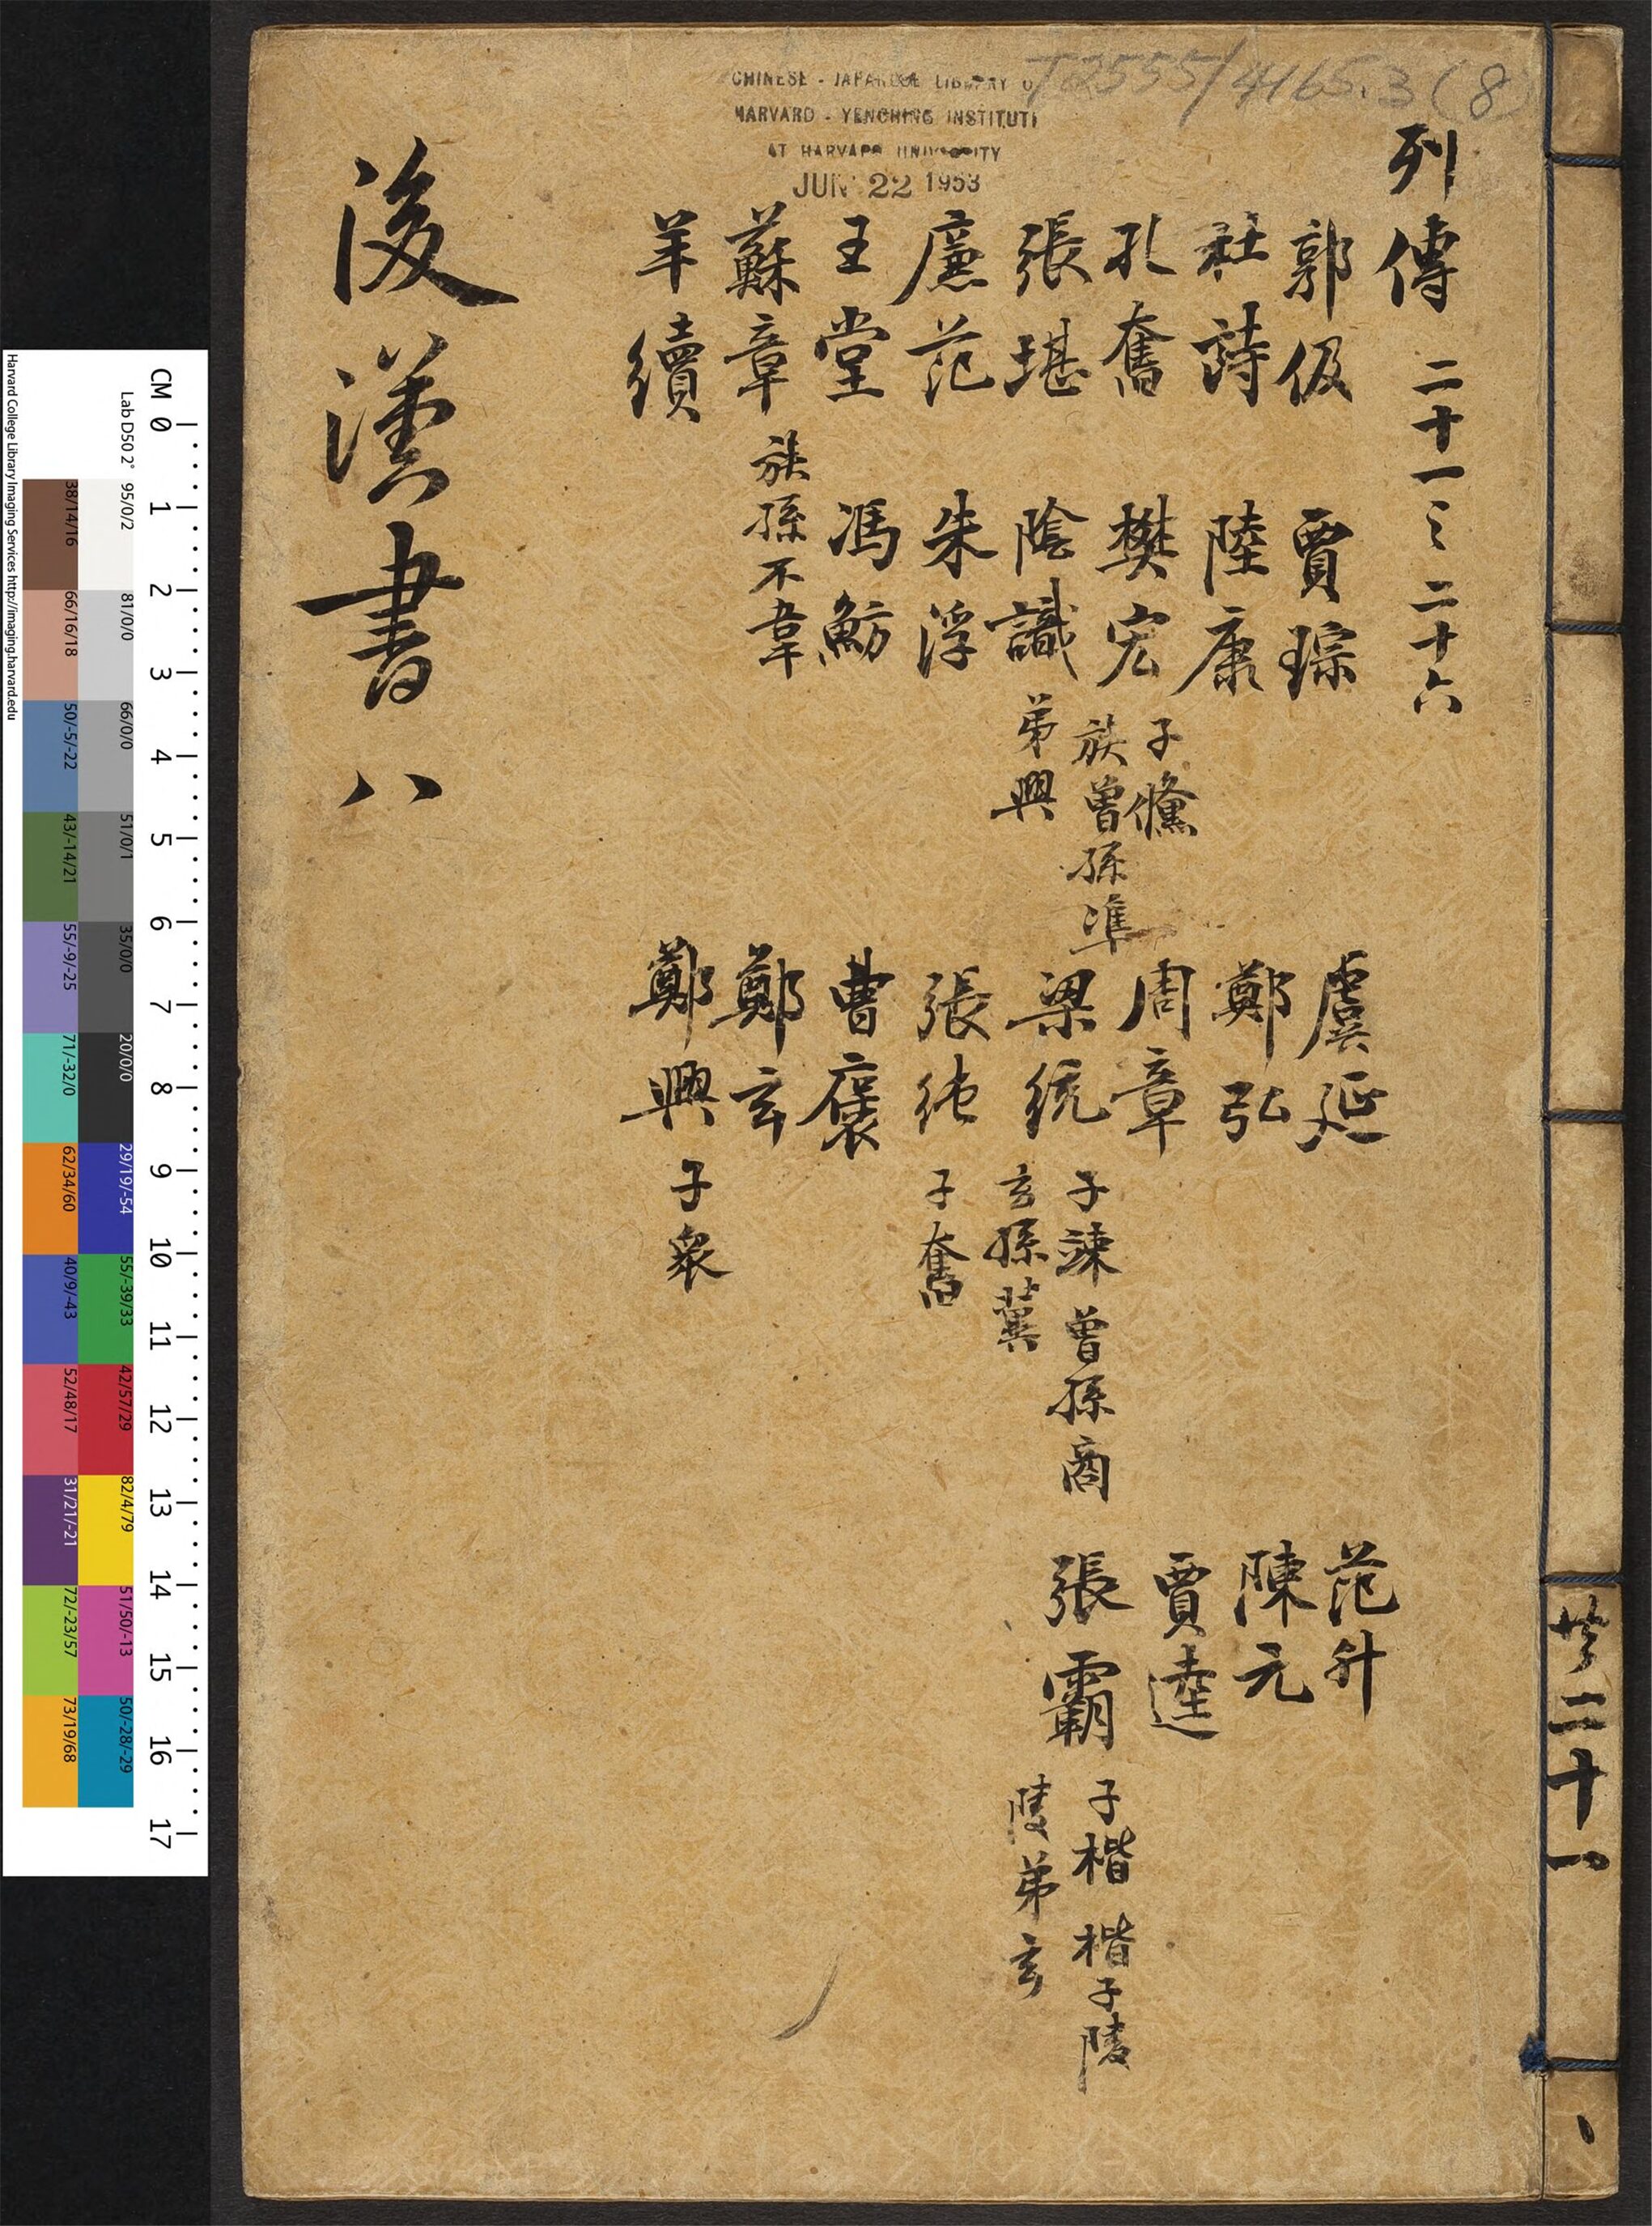 T2555/4165.3(8)
CHINESE - JAPANESE LIBRARY OF
HARVARD - YENCHING INSTITUTE
AT HARVARD UNIVERSITY
JUN 22 1953
列傳 二十一之二十六
郭伋
杜詩
孔奮
張堪
廉范
王堂
蘇章 族孫不韋
羊續
賈琮
陸康
樊宏 子儵
族曾孫準
陰識 弟興
朱浮
馮魴
虞延
鄭弘
周章
梁統 子竦 曾孫商
玄孫冀
張純 子奮
曹褒
鄭玄
鄭興 子衆
范升
陳元
賈逵
張霸 子楷 楷子陵
陵弟玄
後漢書 八
二十一
CM 0 1 2 3 4 5 6 7 8 9 10 11 12 13 14 15 16 17
Lab D50 2° 95/0/2 81/0/0 66/0/0 51/0/1 35/0/0 20/0/0 29/19/-54 55/-39/33 42/57/29 82/4/79 51/50/-13 50/-28/-29
38/14/16 66/16/18 50/-5/-22 43/-14/21 55/-9/-25 71/-32/0 62/34/60 40/9/-43 52/48/17 31/21/-21 72/-23/57 73/19/68
Harvard College Library Imaging Services http://imaging.harvard.edu